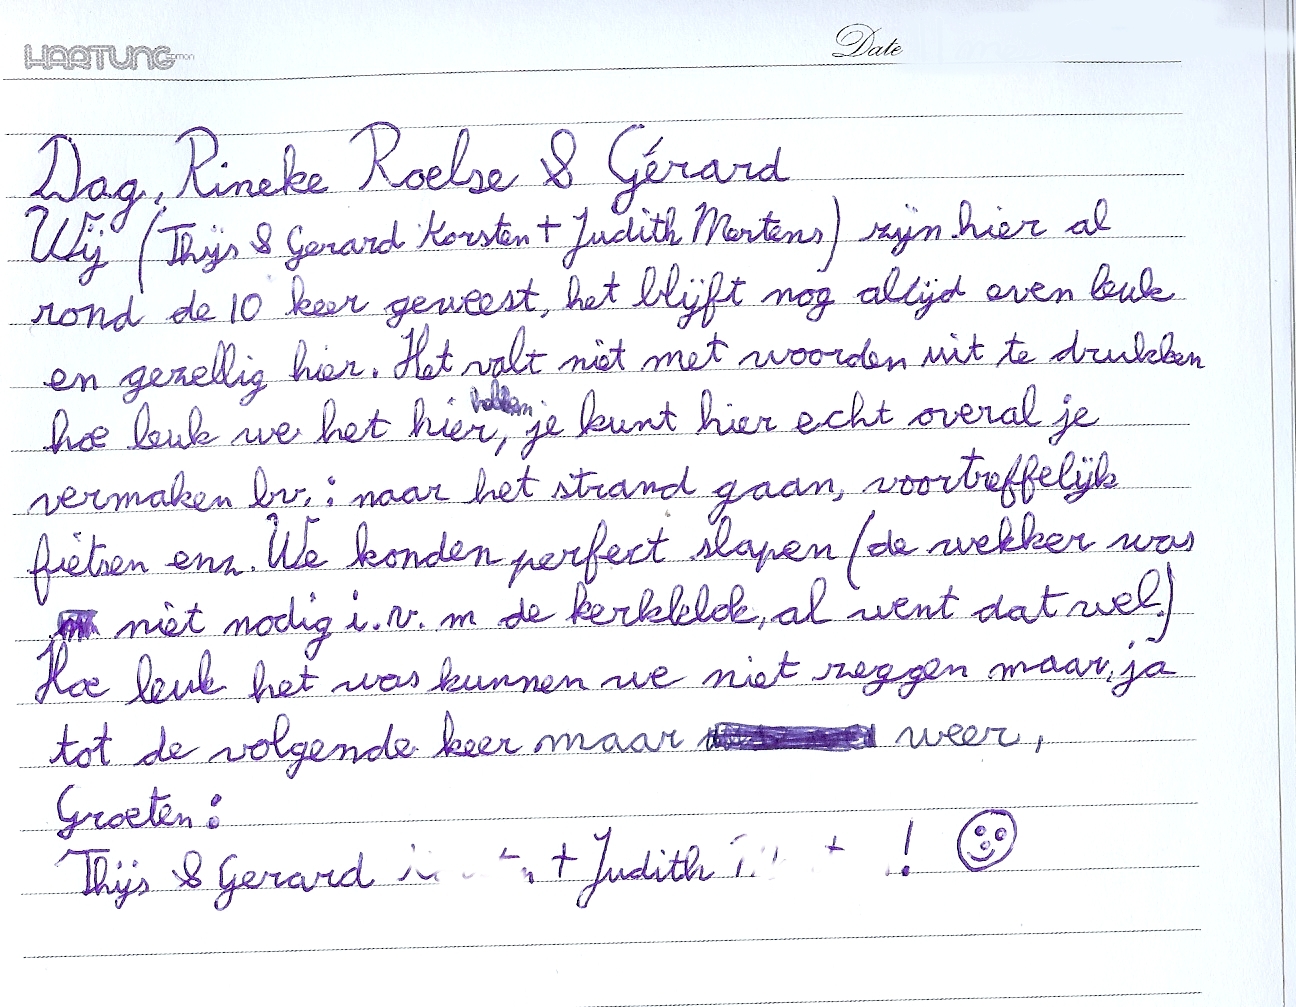 HARTUNG EDITION
Date
Dag, Rineke Roelse & Gérard
Wij (Thijs & Gerard Korsten + Judith Mertens) zijn hier al
rond de 10 keer geweest, het blijft nog altijd even leuk
en gezellig hier. Het valt niet met woorden uit te drukken
hoe leuk we het hier hebben, je kunt hier echt overal je
vermaken bv.: naar het strand gaan, voortreffelijk
fietsen enz. We konden perfect slapen (de wekker was
niet nodig i.v.m de kerkklok, al went dat wel.)
Hoe leuk het was kunnen we niet zeggen maar, ja
tot de volgende keer maar weer,
Groeten:
Thijs & Gerard + Judith !